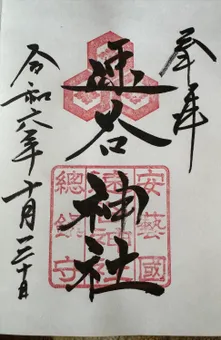 奉拝
速谷神社
安藝國
總鎮守
令和六年十月二十日